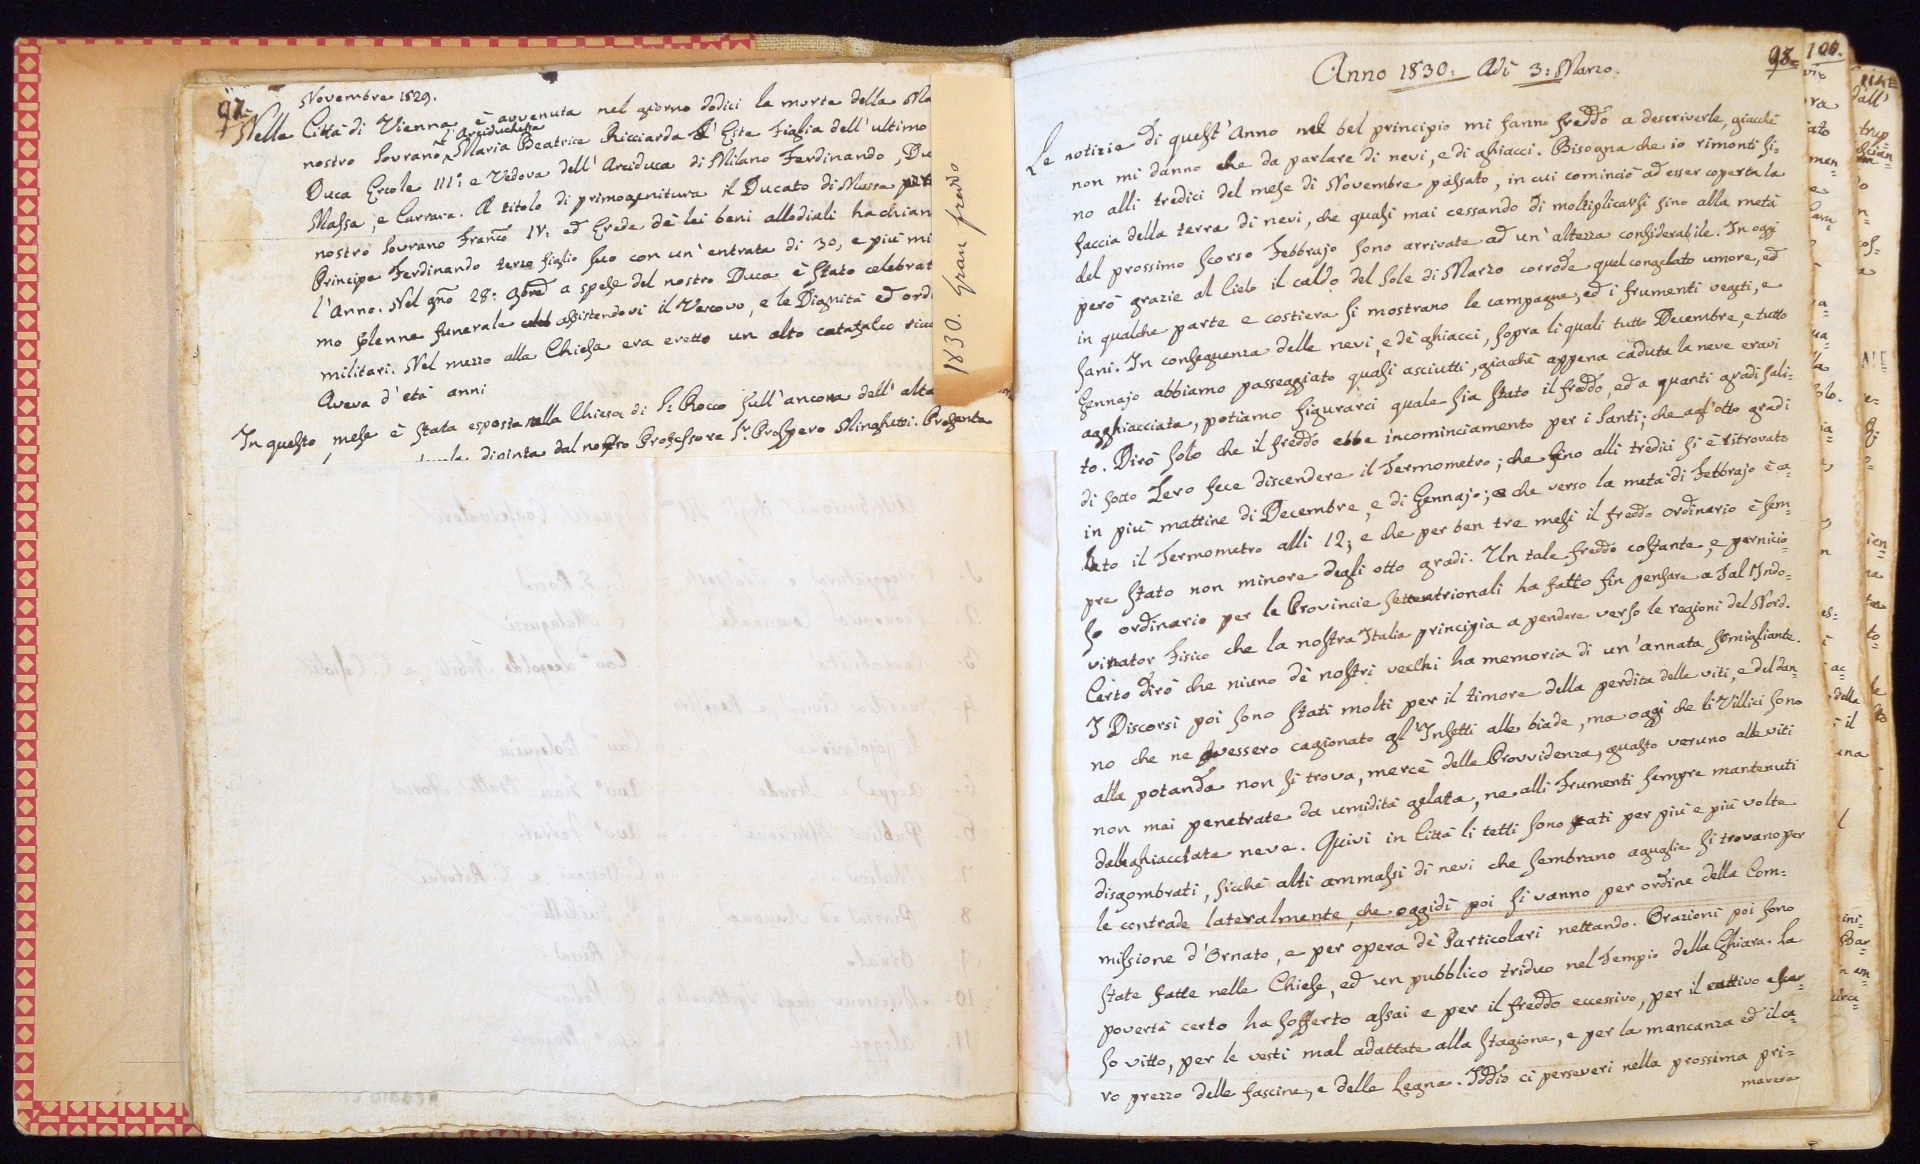 97.
Novembre 1829.
Nella Città di Vienna è avvenuta nel giorno dodici la morte della
l'Arciduchessa
nostro Sovrano Maria Beatrice Ricciarda d'Este Figlia dell'ultimo
Duca Ercole III: e Vedova dell'Arciduca di Milano Ferdinando,
Massa, e Carrara. A titolo di primogenitura il Ducato di Massa
nostro Sovrano Franco IV: ed Erede de' lei beni allodiali ha
Principe Ferdinando terzo figlio suo con un'entrata di 30, e più
l'Anno. Nel gno 28: 9bre a spese del nostro Duca è stato
mo solenne funerale assistendovi il Vescovo, e le Dignità ed
militari. Nel mezzo alla Chiesa era eretto un alto catafalco
Aveva d'età anni
In questo mese è stata esposta nella Chiesa di S: Rocco sull'ancona dell'
dipinta dal nostro Professore Sr Prospero Minghetti.
1830. Gran freddo
98
100.
Anno 1830: Adì 3: Marzo.
Le notizie di quest'Anno nel bel principio mi fanno freddo a descriverle, giacchè
non mi danno che da parlare di nevi, e di ghiacci. Bisogna che io rimonti fi-
no alli tredici del mese di Novembre passato, in cui cominciò ad esser coperta la
faccia della terra di nevi, che quasi mai cessando di moltiplicarsi sino alla metà
del prossimo scorso Febbrajo sono arrivate ad un'altezza considerabile. In oggi
però grazie al Cielo il caldo del Sole di Marzo corrode quel congelato umore, ed
in qualche parte e costiera si mostrano le campagne, ed i frumenti vegeti, e
sani. In conseguenza delle nevi, e de' ghiacci, sopra li quali tutto Decembre, e tutto
Gennajo abbiamo passeggiato quasi asciutti, giacchè appena caduta la neve eravi
agghiacciata, potiamo figurarci quale sia stato il freddo, ed a quanti gradi sali-
to. Dirò solo che il freddo ebbe incominciamento per i Santi; che agl'otto gradi
di sotto Zero fece discendere il Termometro; che fino alli tredici si è ritrovato
in più mattine di Decembre, e di Gennajo; e che verso la metà di Febbrajo è a-
lzato il Termometro alli 12; e che per ben tre mesi il freddo ordinario è sem-
pre stato non minore degli otto gradi. Un tale freddo costante, e pernicio-
so ordinario per le Provincie settentrionali ha fatto fin pensare a tal Indo-
vinator Fisico che la nostra Italia principia a pendere verso le regioni del Nord.
Certo dirò che niuno de' nostri vecchi ha memoria di un'annata somigliante.
I Discorsi poi sono stati molti per il timore della perdita delle viti, e del dan-
no che ne avessero cagionato gl'Insetti alle biade, ma oggi che li Villici sono
alla potanda non si trova, mercè della Provvidenza, guasto veruno alle viti
non mai penetrate da umidità gelata, ne alli Frumenti sempre mantenuti
dalla ghiacciata neve. Quivi in Città li tetti sono stati per più e più volte
disgombrati, sicchè alti ammassi di nevi che sembrano aguglie si trovano per
le contrade lateralmente, che oggidì poi si vanno per ordine della Com-
missione d'Ornato, e per opera de' Particolari nettando. Orazioni poi sono
state fatte nelle Chiese, ed un pubblico triduo nel Tempio della Ghiara. La
povertà certo ha sofferto assai e per il freddo eccessivo, per il cattivo e scar-
so vitto, per le vesti mal adattate alla stagione, e per la mancanza ed il ca-
ro prezzo delle fascine, e delle Legne. Iddio ci perseveri nella prossima pri-
mavera